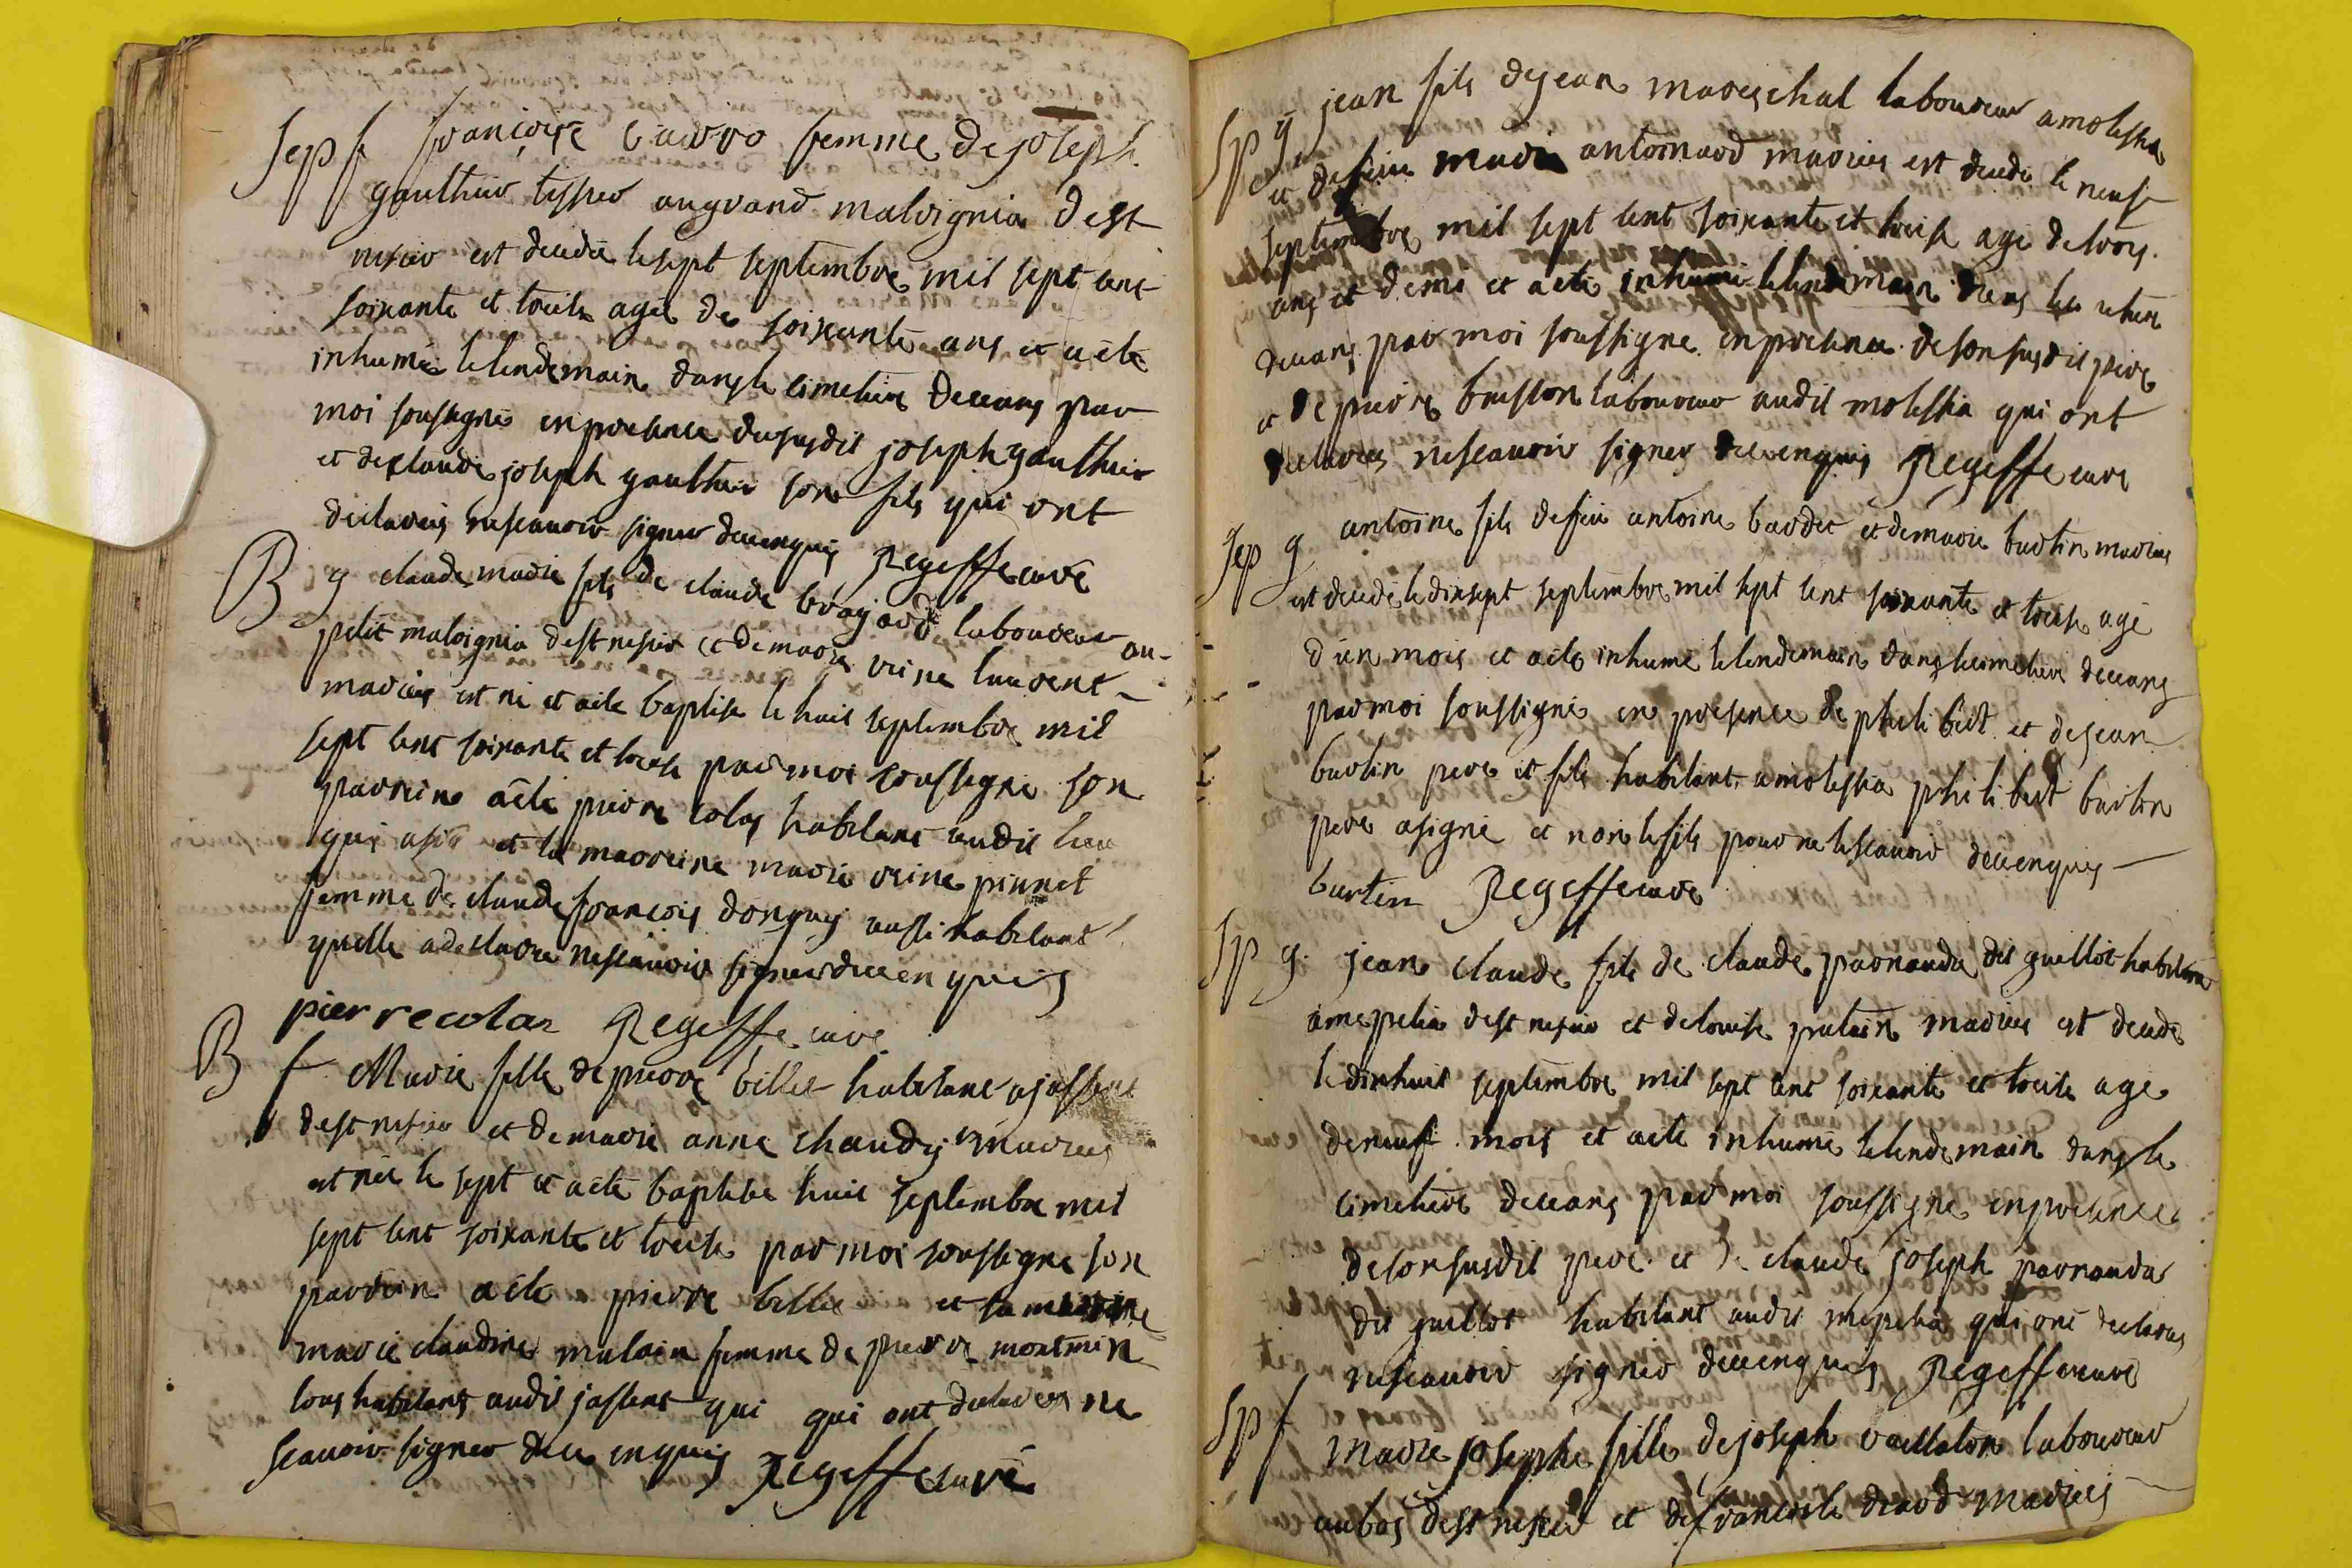 Sep f françoise
femme de joseph
gauthier tissier au grand malvignia dest
nesier est decedée le sept septembre mil sept cent
soixante et treise agée de soixante ans et a été
inhumée le lendemain dans le cimetiere de ceans par
moi soussigné en presence du susdit joseph gauthier
et de claude joseph gauthier son fils qui ont
declarés ne scavoir signer de ce enquis Regeffe curé
B g claude marie fils de claude brajard laboureur au
petit malvignia dest nesier et de marie reine laurent
mariés est né et a été baptisé le huit septembre mil
sept cent soixante et treise par moi soussigné son
parrein a été pierre colas habitant audit lieu
qui a signé et la marreine marie reine
femme de claude françois donguy aussi habitant
quelle a declaré ne scavoir signer de ce enquis
pierre colas Regeffe curé
B f Marie fille de pierre billet habitant a jassent
dest nesier et de marie anne chandy mariés
est née le sept et a été baptisée huit septembre mil
sept cent soixante et treise par moi soussigné son
parrein a été pierre billet et sa marreine
marie claudine mulain femme de pierre montmin
tous habitants audit jassent qui qui ont declarés ne
scavoir signer de ce enquis Regeffe curé
Sep g jean fils de jean mareschal laboureur a molessia
et de feüe marie antoinard mariés est decedé le neuf
septembre mil sept cent soixante et treise agé de trois
ans et demi et a été inhumé le lendemain dans le
de ceans par moi soussigné en presence de son susdit pere
et de pierre buisson laboureur audit molessia qui ont
declarés ne scavoir signer de ce enquis Regeffe curé
Sep g antoine fils de feu antoine bardet et de marie burtin mariés
est decedé le dixsept septembre mil sept cent soixante et treise agé
d'un mois et a été inhumé le lendemain dans le cimetiere de ceans
par moi soussigné en presence de philibert et de jean
burtin pere et fils habitant a molessia philibert burtin
pere a signé et non le fils pour ne le scavoir de ce enquis
burtin Regeffe curé
Sep g jean claude fils de claude parnaudu dit guillot habitant
a mepelia dest nesier et de louise putain mariés est decedé
le dixhuit septembre mil sept cent soixante et treise agé
de neuf mois et a été inhumé le lendemain dans le
cimetiere de ceans par moi soussigné en presence
de son susdit pere et de claude joseph parnaudu
dit guillot habitant audit mepelia qui ont declarés
ne scavoir signer de ce enquis Regeffe curé
Sep f Marie josephe fille de joseph vaillaton laboureur
au bas dest nesier et de françoise drard mariés